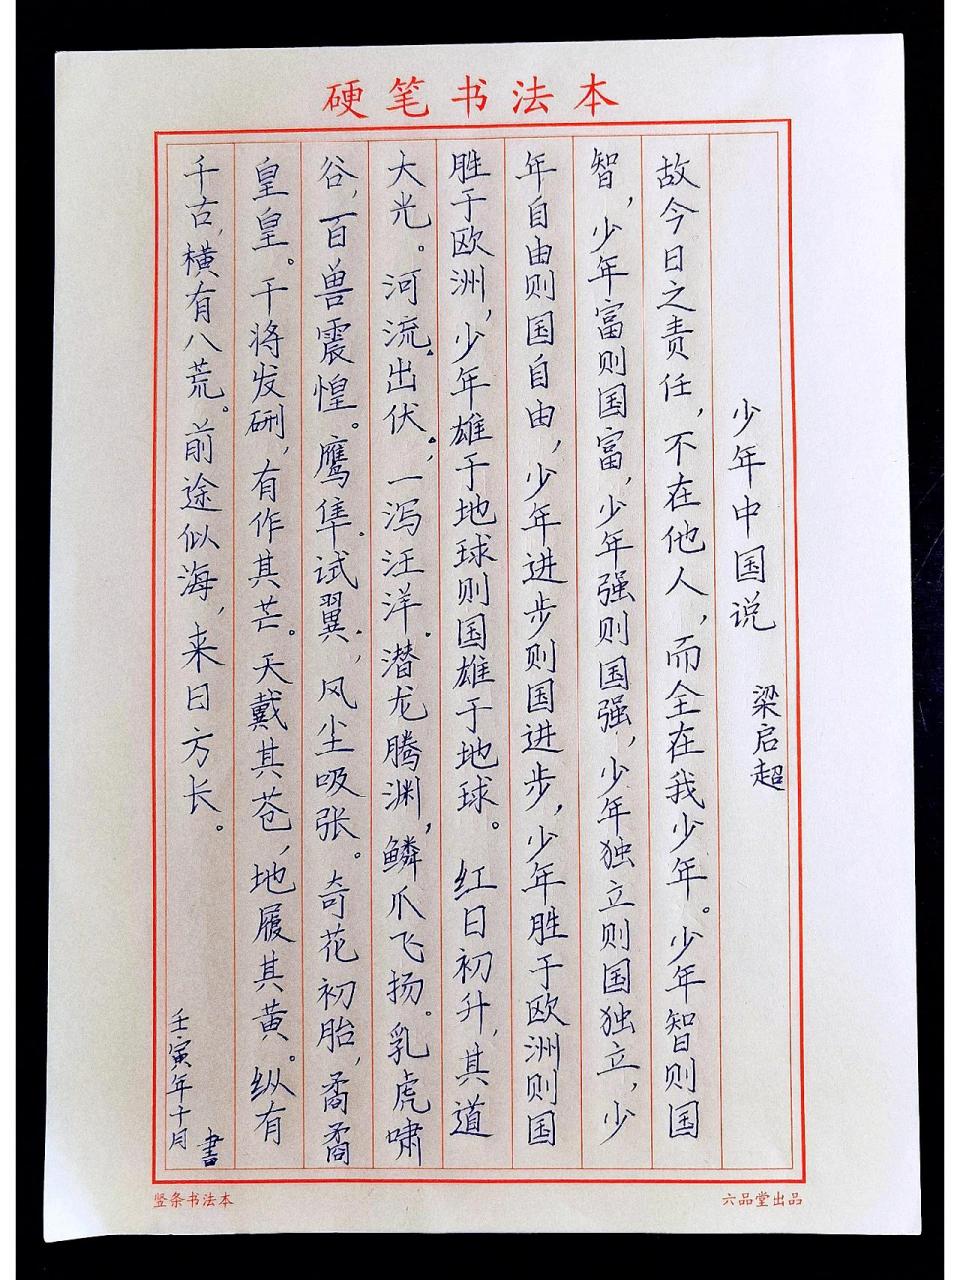 硬笔书法本
少年中国说 梁启超
故今日之责任，不在他人，而全在我少年。少年智则国
智，少年富则国富，少年强则国强，少年独立则国独立，少
年自由则国自由，少年进步则国进步，少年胜于欧洲则国
胜于欧洲，少年雄于地球则国雄于地球。红日初升，其道
大光。河流出伏。，一泻汪洋。潜龙腾渊，鳞爪飞扬。乳虎啸
谷，百兽震惶。鹰隼试翼，风尘吸张。奇花初胎，矞矞
皇皇。干将发硎，有作其芒。天戴其苍，地履其黄。纵有
千古，横有八荒。前途似海，来日方长。
壬寅年十月
書
竖条书法本
六品堂出品